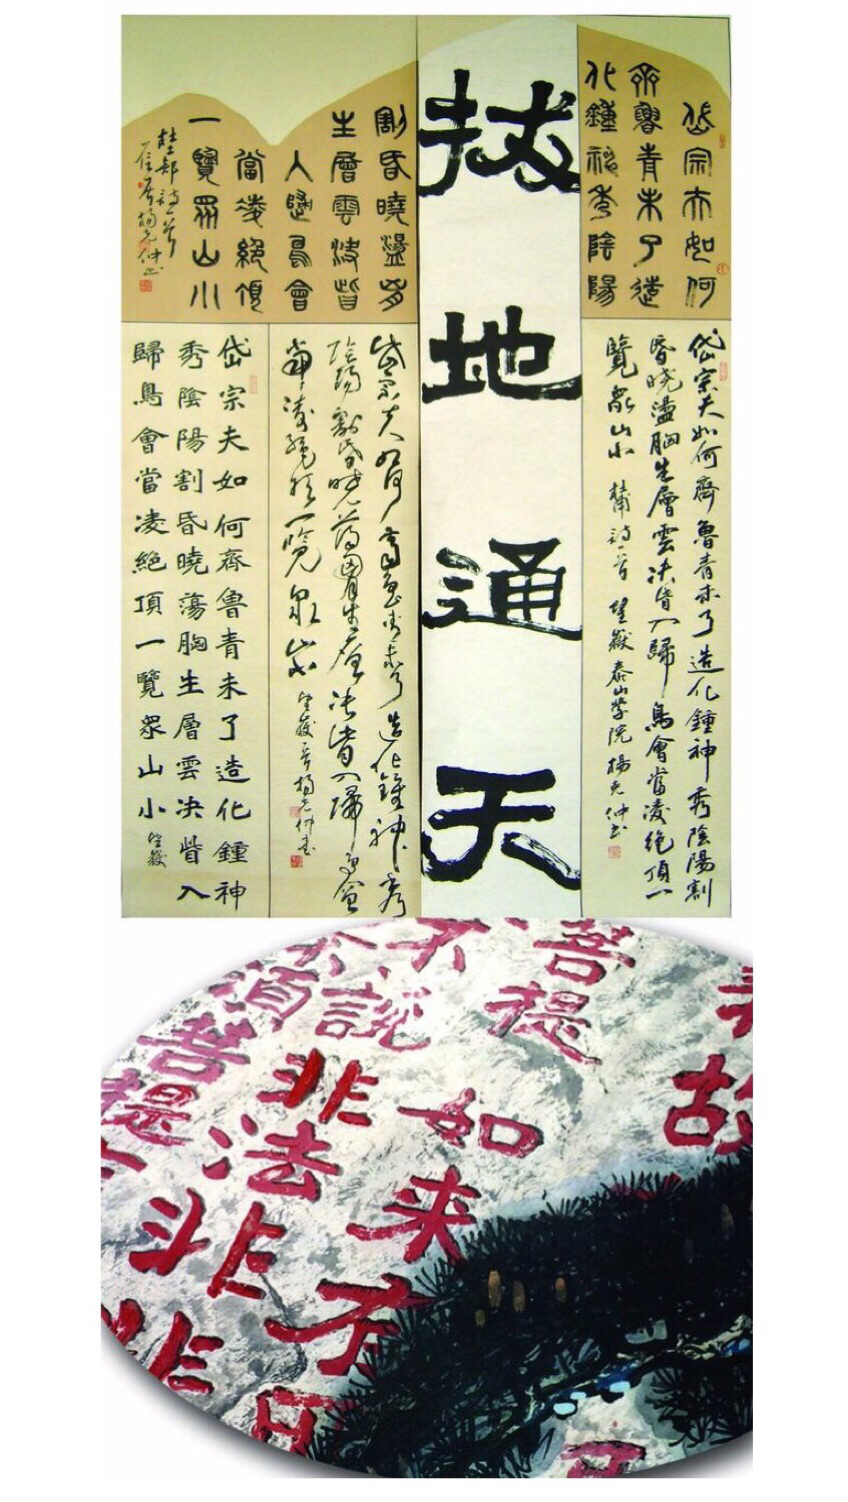 岱宗夫如何
齊魯青未了造
化鍾神秀陰陽
岱宗夫如何齊魯青未了造化鍾神秀陰陽割
昏曉盪胸生層雲決眥入歸鳥會當凌絕頂一
覽眾山小 杜甫詩一首 望嶽 泰山學院 楊克仲書
拔地通天
割昏曉盪胷
生層雲決眥
入歸鳥會
當凌絕頂
一覽眾山小
杜甫詩一首
楊克仲書
岱宗夫如何齊魯青未了造化鍾神秀
陰陽割昏曉蕩胷生層决眥入歸鳥會
當凌絕頂一覽眾山小 望嶽一首 楊克仲書
岱宗夫如何齊魯青未了造化鍾神
秀陰陽割昏曉蕩胸生層雲決眥入
歸鳥會當凌絕頂一覽眾山小 望嶽
故
菩提
如来
不說
非法非
須菩提
非